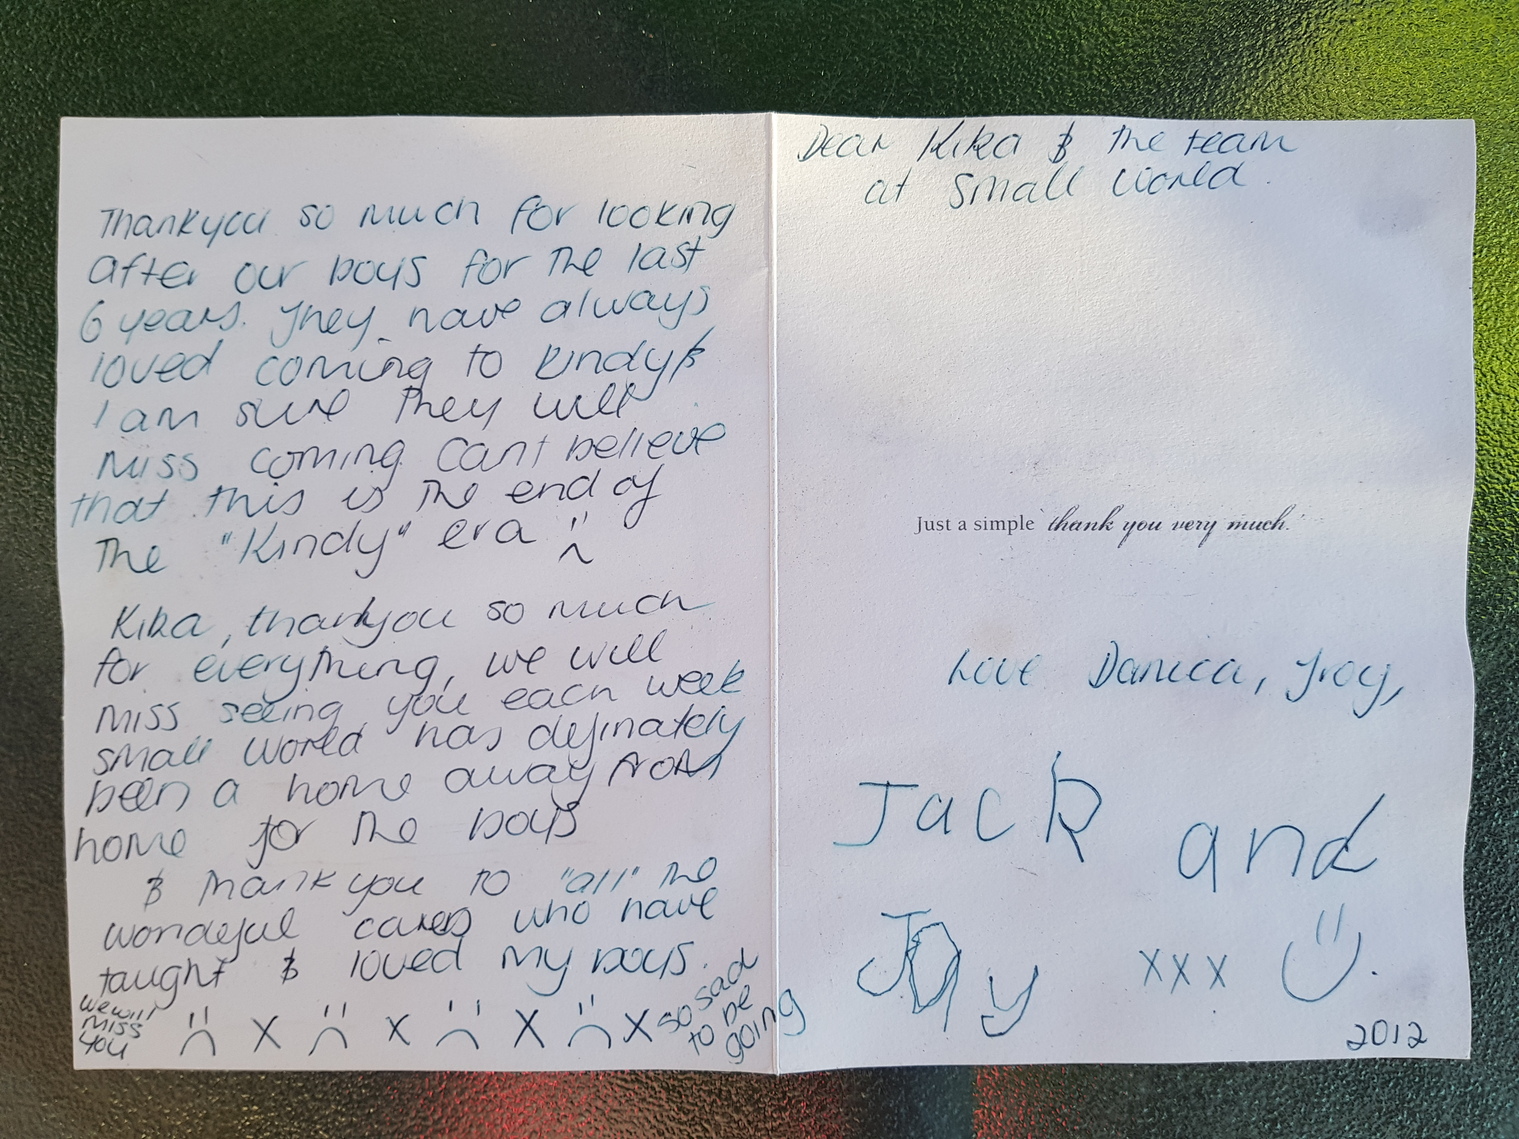 Dear Kika & the team
at Small World.
Thankyou so much for looking
after our boys for the last
6 years. They have always
loved coming to kindy &
I am sure they will
miss coming. Cant believe
that this is the end of
the "Kindy" era
Kika, thankyou so much
for everything, we will
miss seeing you each week
small world has definately
been a home away from
home for the boys
& thank you to "all" the
wonderful carers who have
taught & loved my boys.
we will
miss
you
x x x x
so sad
to be
going
Just a simple thank you very much.
Love Danica, Troy,
Jack and
Jay xxx
2012